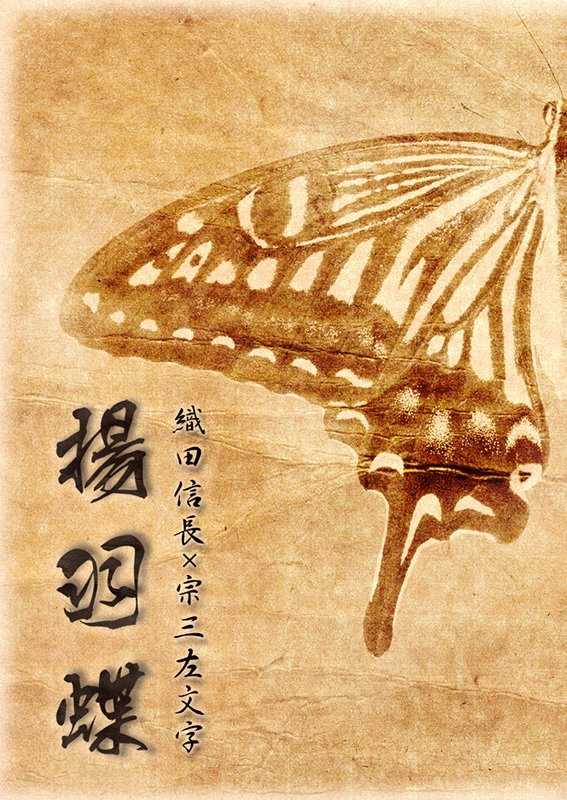 織田信長×宗三左文字
揚羽蝶